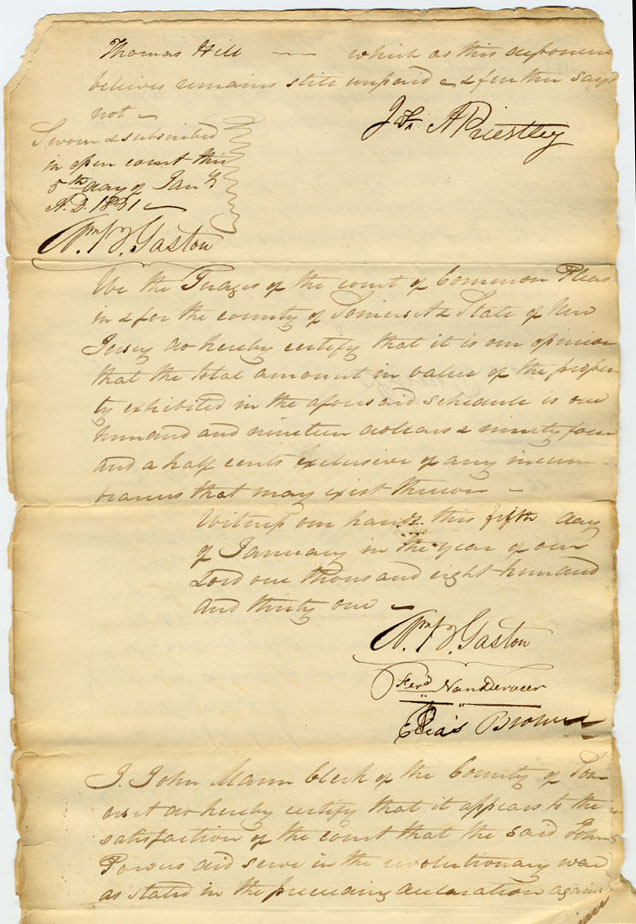 Thomas Hill — which as this deponent
believes remains still unpaid & further says
not —
Jno A Priestley
Sworn & subscribed
in open court this
5th day of Jany
A.D. 1831 —
Wm B. Gaston
We the Judges of the court of Common Pleas
in & for the county of Somerset & State of New
Jersey do hereby certify that it is our opinion
that the total amount in value of the proper
ty exhibited in the aforesaid schedule is one
hundred and nineteen dollars & ninety four
and a half cents exclusive of any incum-
brances that may exist thereon —
Witness our hands this fifth day
of January in the year of our
Lord one thousand eight hundred
and thirty one —
Wm B. Gaston
Ferd Vanderveer
Elias Brown
I. John Mann Clerk of the County of Som-
erset do hereby certify that it appears to the
satisfaction of the court that the said John
Powers did serve in the revolutionary war
as stated in the preceeding declaration against